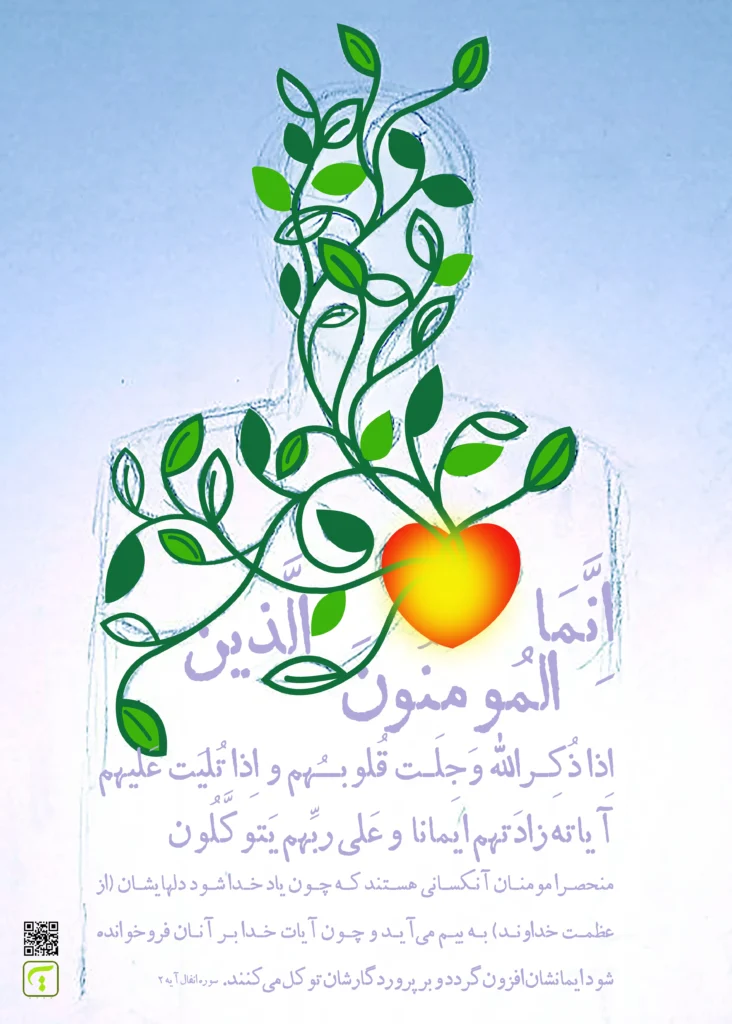 اِنَّمَا
المُومنونَ الَّذین
اذا ذُکِـر الله وَجِلَـت قُلوبـُهم و اِذا تُلیَت علیهم
آیاته زادَتهم ایَمانا و عَلی ربِّهم یَتوکَّلُون
منحصرا مومنان آنکسانی هستند که چون یاد خدا شود دلهایشان (از
عظمت خداوند) به بیم می‌آید و چون آیات خدا بر آنان فروخوانده
شود ایمانشان افزون گردد و بر پروردگارشان توکل می‌کنند. سوره انفال آیه ۲